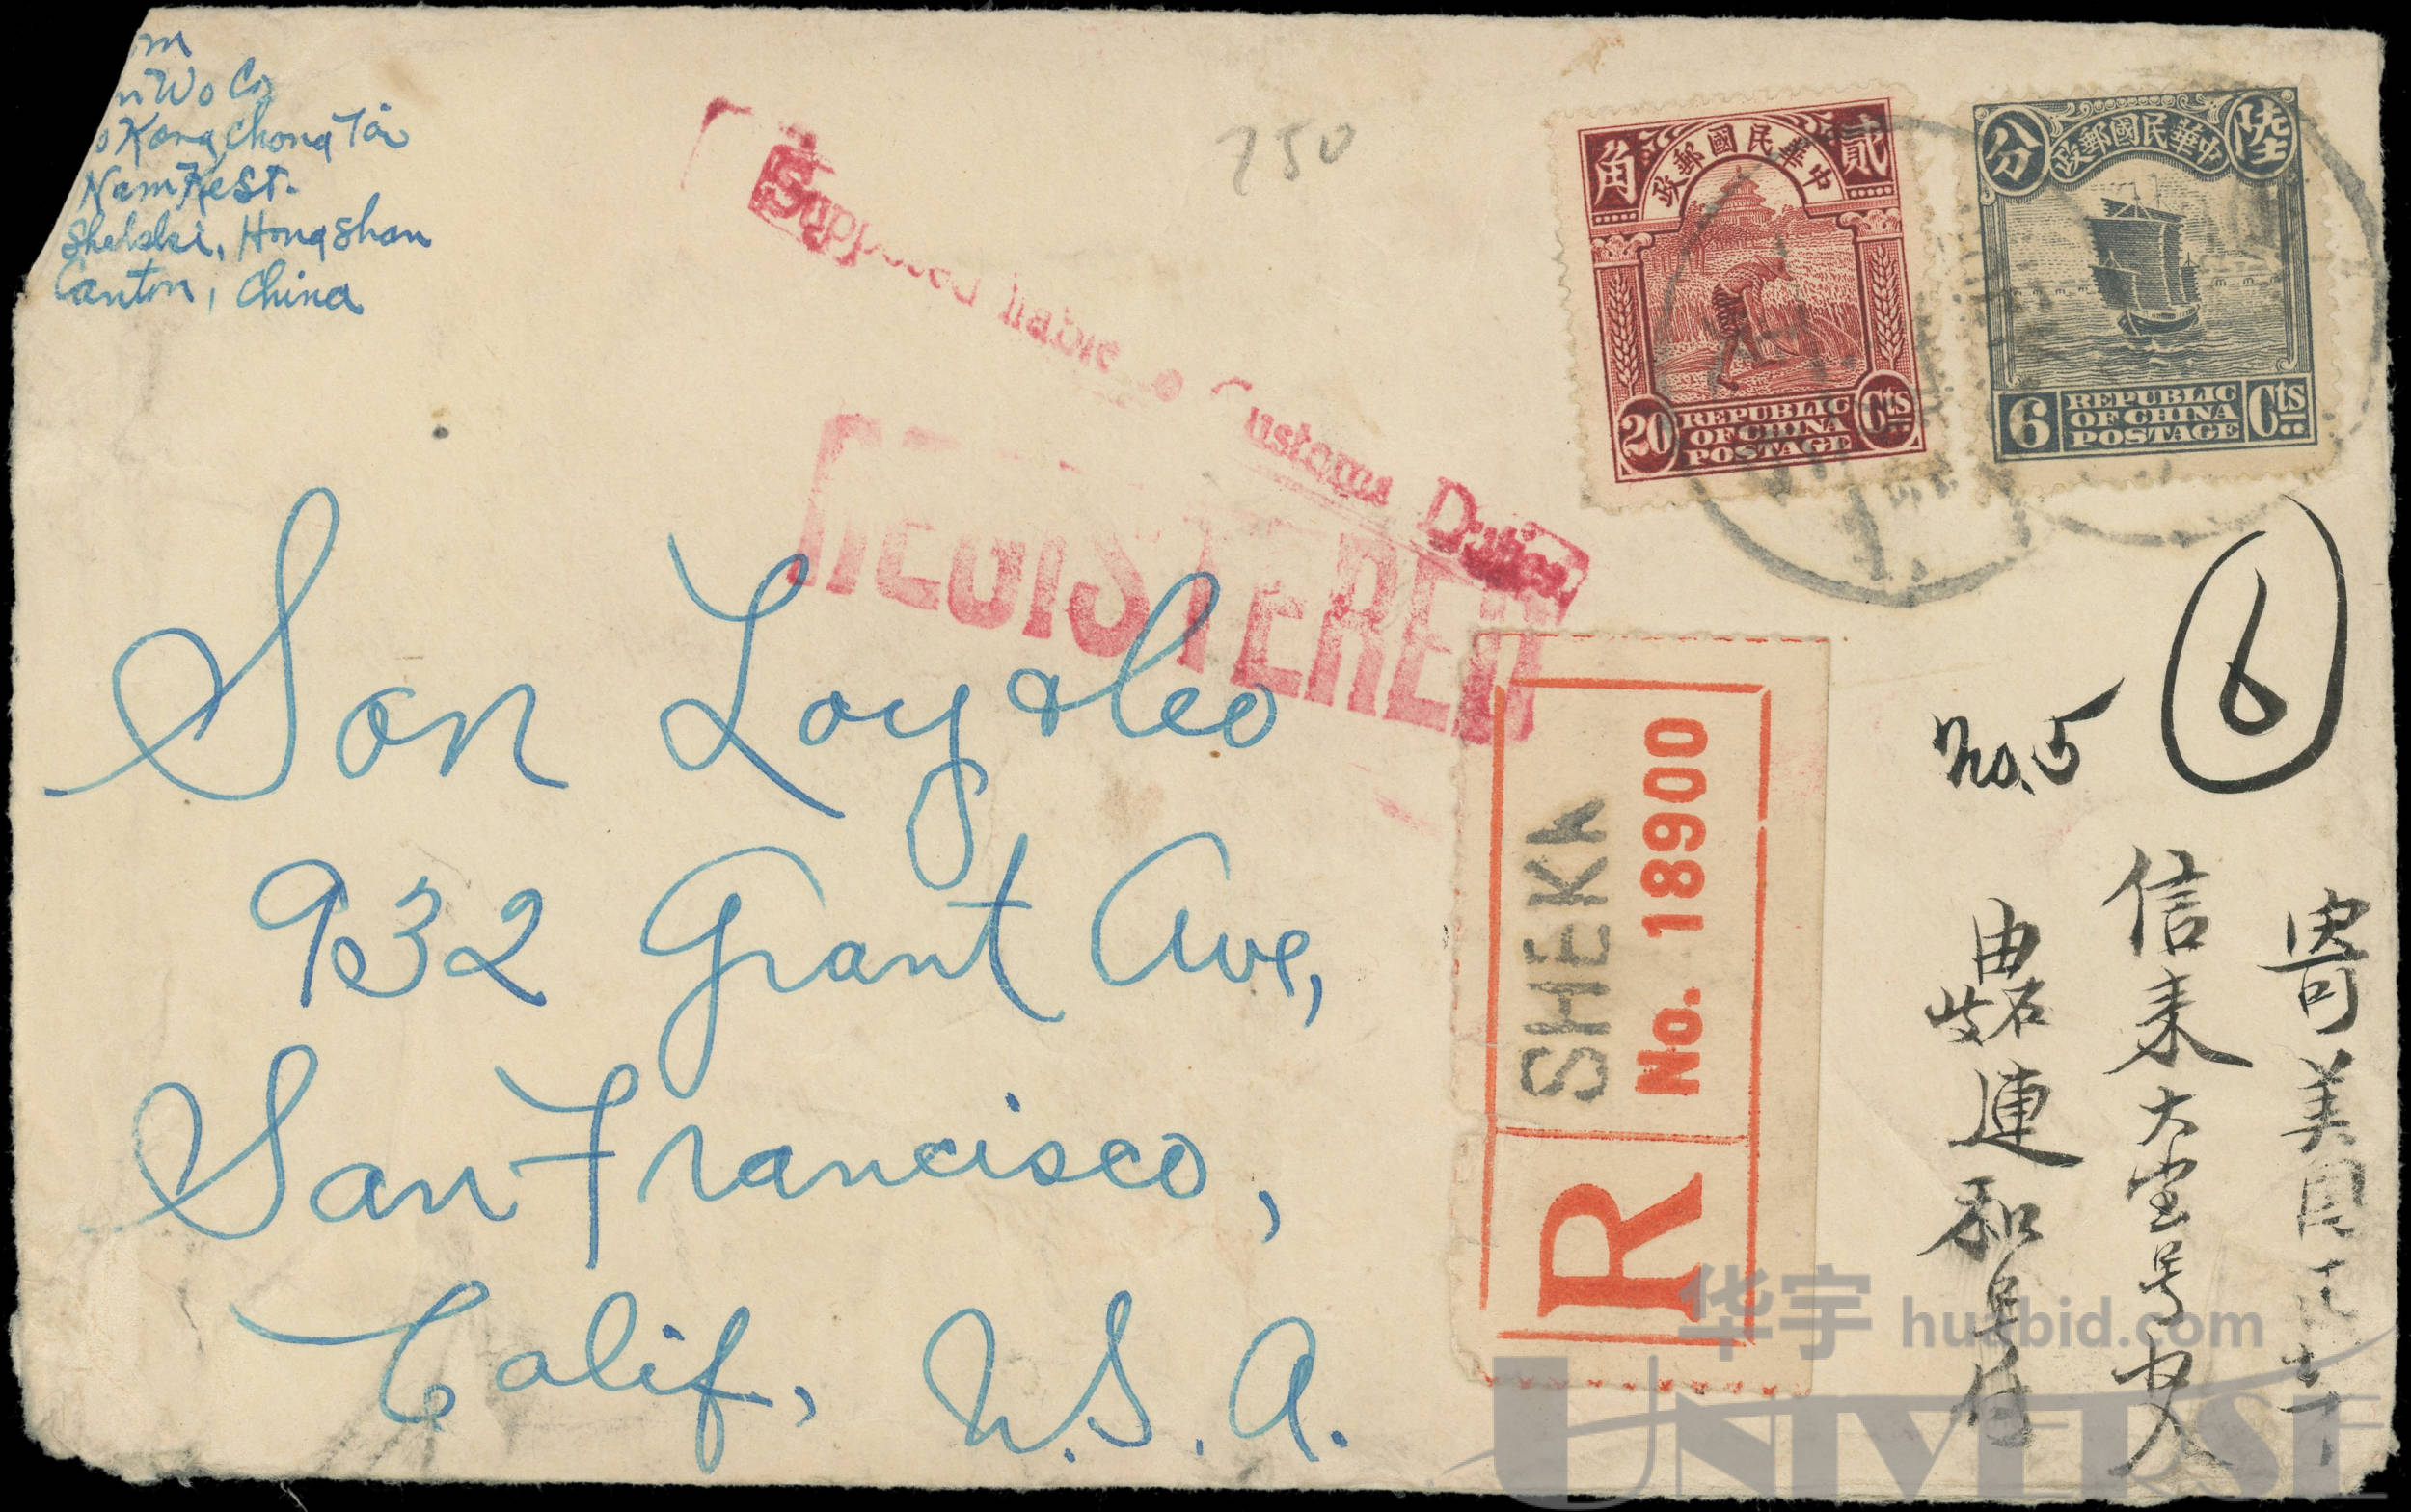 Wo Co
Kong Chong Tai
Nam Ke St.
Shekki, Hongshan
Canton, China
750
Supposed liable to Customs Duties
REGISTERED
角 貳
政郵國民華中
20 REPUBLIC OF CHINA POSTAGE Cts
分 陸
政郵國民華中
6 REPUBLIC OF CHINA POSTAGE Cts
6
no. 5
San Loy & Co
932 Grant Ave,
San Francisco,
Calif, U.S.A.
R SHEKK
No. 18900
寄美國
信來大宝号收
由石岐連和号付
华宇 huabid.com
UNIVERSE